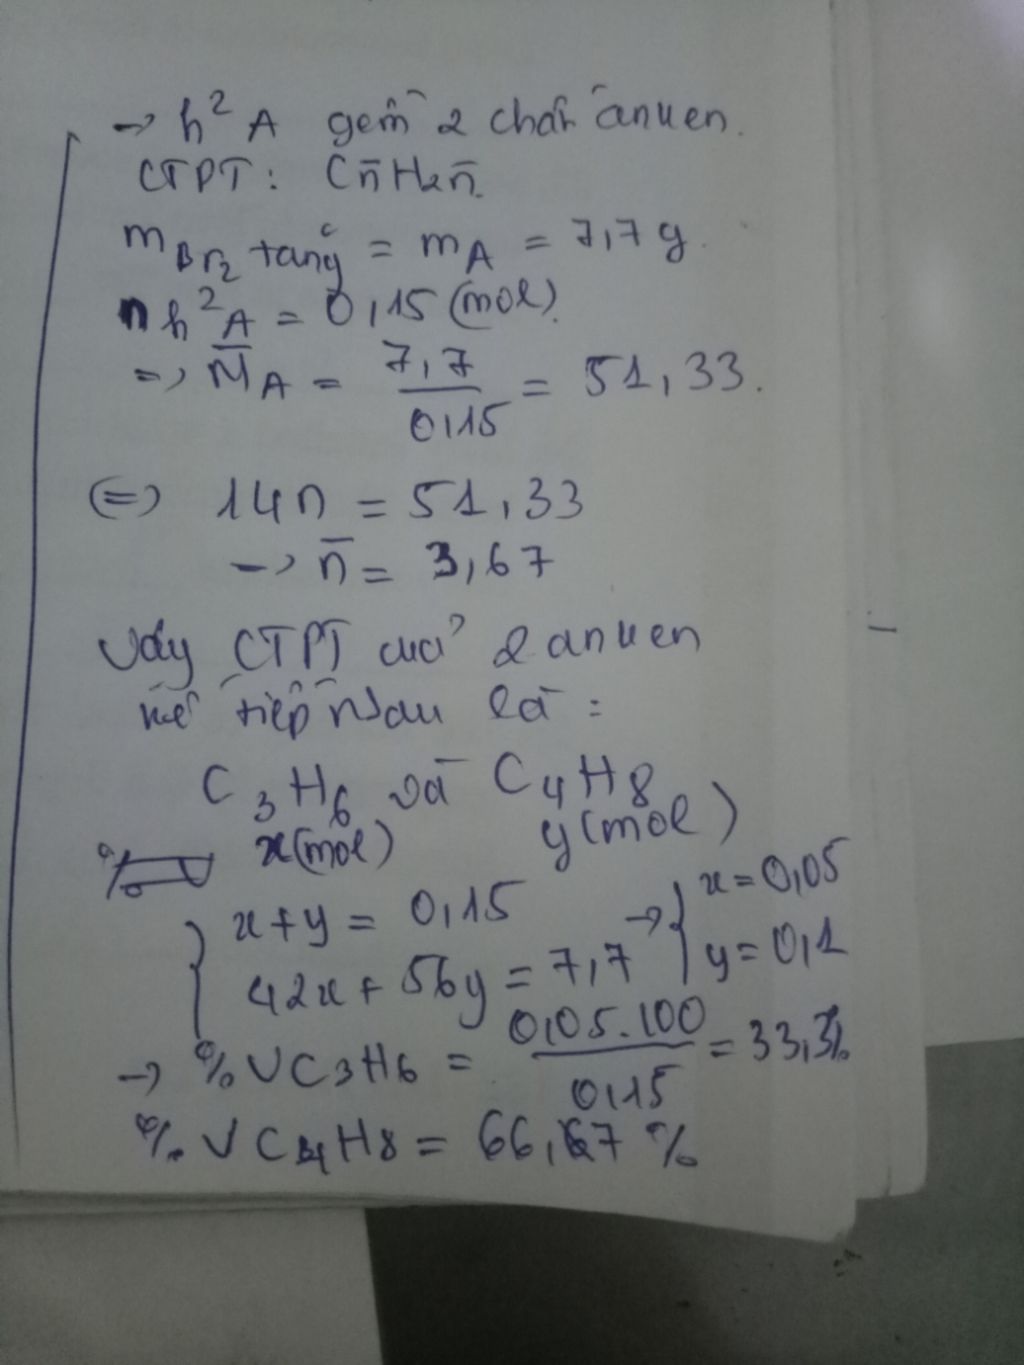 → h² A gồm 2 chất anken.
CTPT: Cn̄H2n̄.
mBr₂ tăng = mA = 7,7 g.
n h² A = 0,15 (mol).
=> M̄A = 7,7 / 0,15 = 51,33.
(=) 14n = 51,33
→ n̄ = 3,67
Vậy CTPT của 2 anken
kế tiếp nhau là :
C₃H₆ và C₄H₈
x(mol) y(mol)
%V
{ x + y = 0,15 → { x = 0,05
42x + 56y = 7,7 y = 0,1
→ %VC₃H₆ = 0,05.100 / 0,15 = 33,3%
%VC₄H₈ = 66,67 %